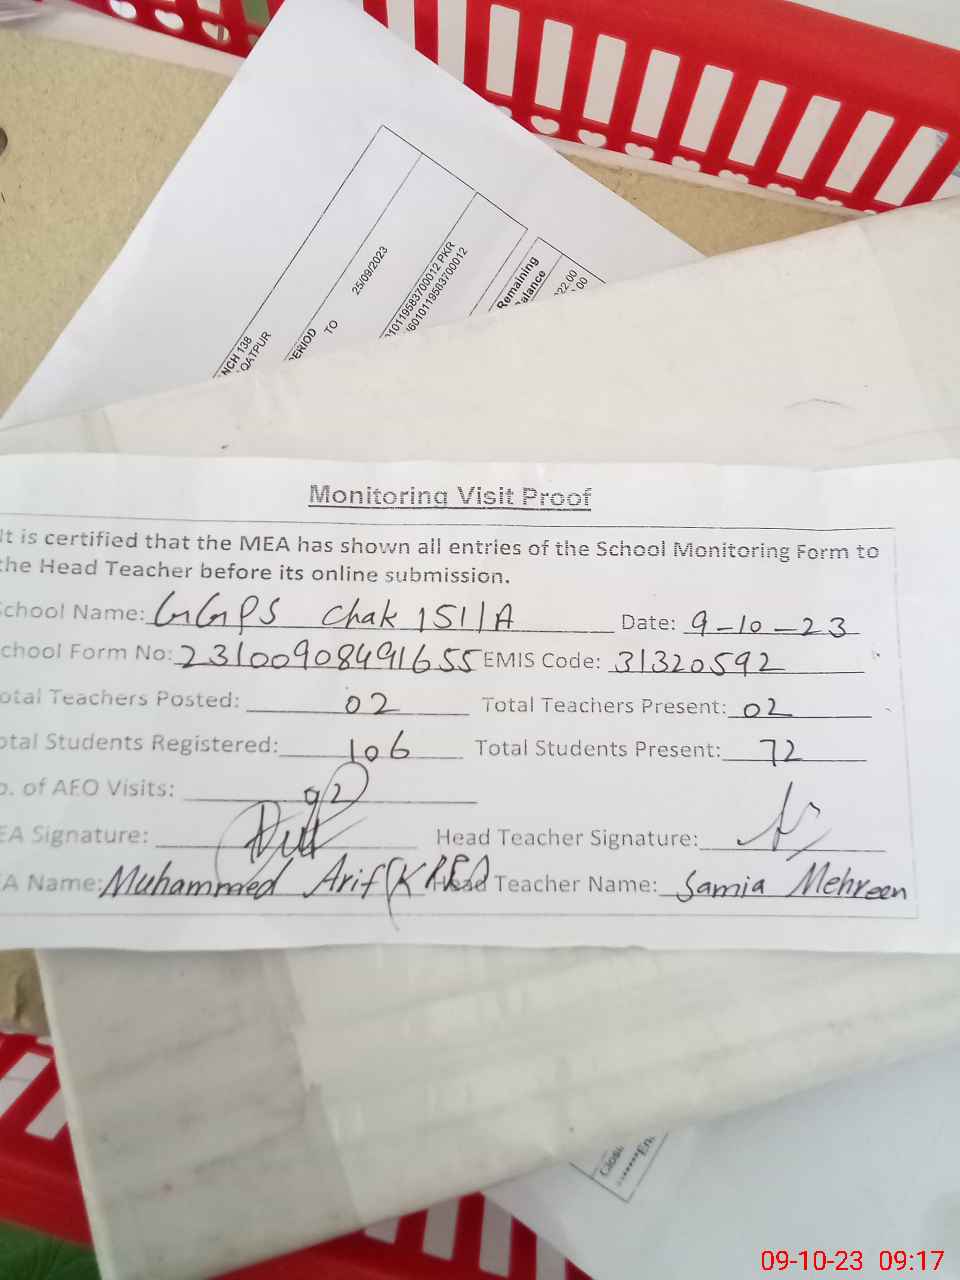 NCH 138
QATPUR
ERIOD
TO
25/09/2023
10119583700012 PKR
6010119583700012
Remaining
alance
22.00
00
Monitoring Visit Proof
It is certified that the MEA has shown all entries of the School Monitoring Form to
the Head Teacher before its online submission.
School Name: GGPS Chak 151/1A Date: 9-10-23
chool Form No: 23100908491655 EMIS Code: 31320592
otal Teachers Posted: 02 Total Teachers Present: 02
otal Students Registered: 106 Total Students Present: 72
o. of AEO Visits: 02
EA Signature: Head Teacher Signature:
EA Name: Muhammed Arif Head Teacher Name: Samia Mehreen
Clos
En
09-10-23 09:17